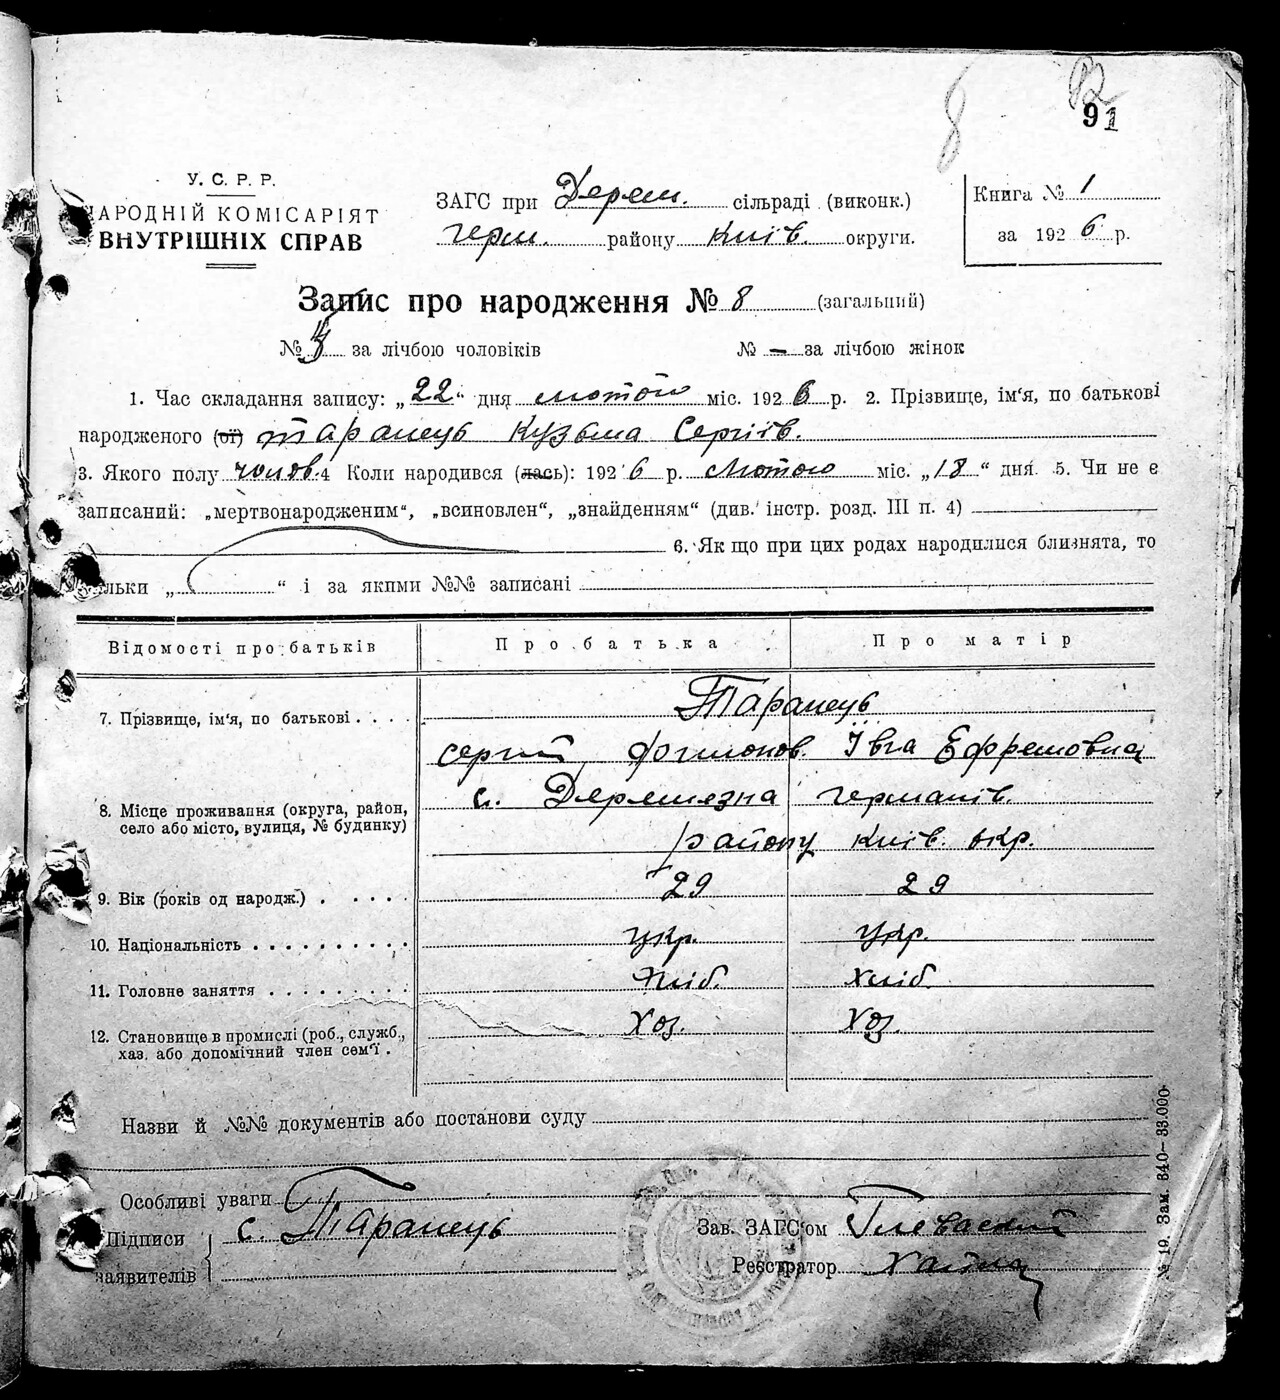 8
92
91
У. С. Р. Р.
НАРОДНІЙ КОМІСАРІЯТ
ВНУТРІШНІХ СПРАВ
ЗАГС при Дерем. сільраді (виконк.)
герм. району Київ. округи.
Книга № 1
за 1926 р.
Запис про народження № 8 (загальний)
№ 4 за лічбою чоловіків № — за лічбою жінок
1. Час складання запису: „22“ дня лютого міс. 1926 р. 2. Прізвище, ім'я, по батькові
народженого (ої) Таранець Кузьма Сергіїв.
3. Якого полу чолов. 4 Коли народився (лась): 1926 р. Лютого міс. „18“ дня. 5. Чи не є
записаний: „мертвонародженим“, „всиновлен“, „знайденням“ (див. інстр. розд. III п. 4)
6. Як що при цих родах народилися близнята, то
скільки „ “ і за якими №№ записані
Відомості про батьків Про батька Про матір
7. Прізвище, ім'я, по батькові . . . . Таранець
Сергій Филимонов. Ївга Ефремовна
8. Місце проживання (округа, район, село або місто, вулиця, № будинку) с. Деремезна германів.
району Київ. окр.
9. Вік (років од народж.) . . . . . 29 29
10. Національність . . . . . . . . . . укр. укр.
11. Головне заняття . . . . . . . . . Хліб. Хліб.
12. Становище в промислі (роб., служб., хаз. або допомічний член сем'ї . Хоз. Хоз.
Назви й №№ документів або постанови суду
Особливі уваги
Підписи заявителів с. Таранець
Зав. ЗАГС'ом
Реєстратор
№ 19. Зам. 640—33.000